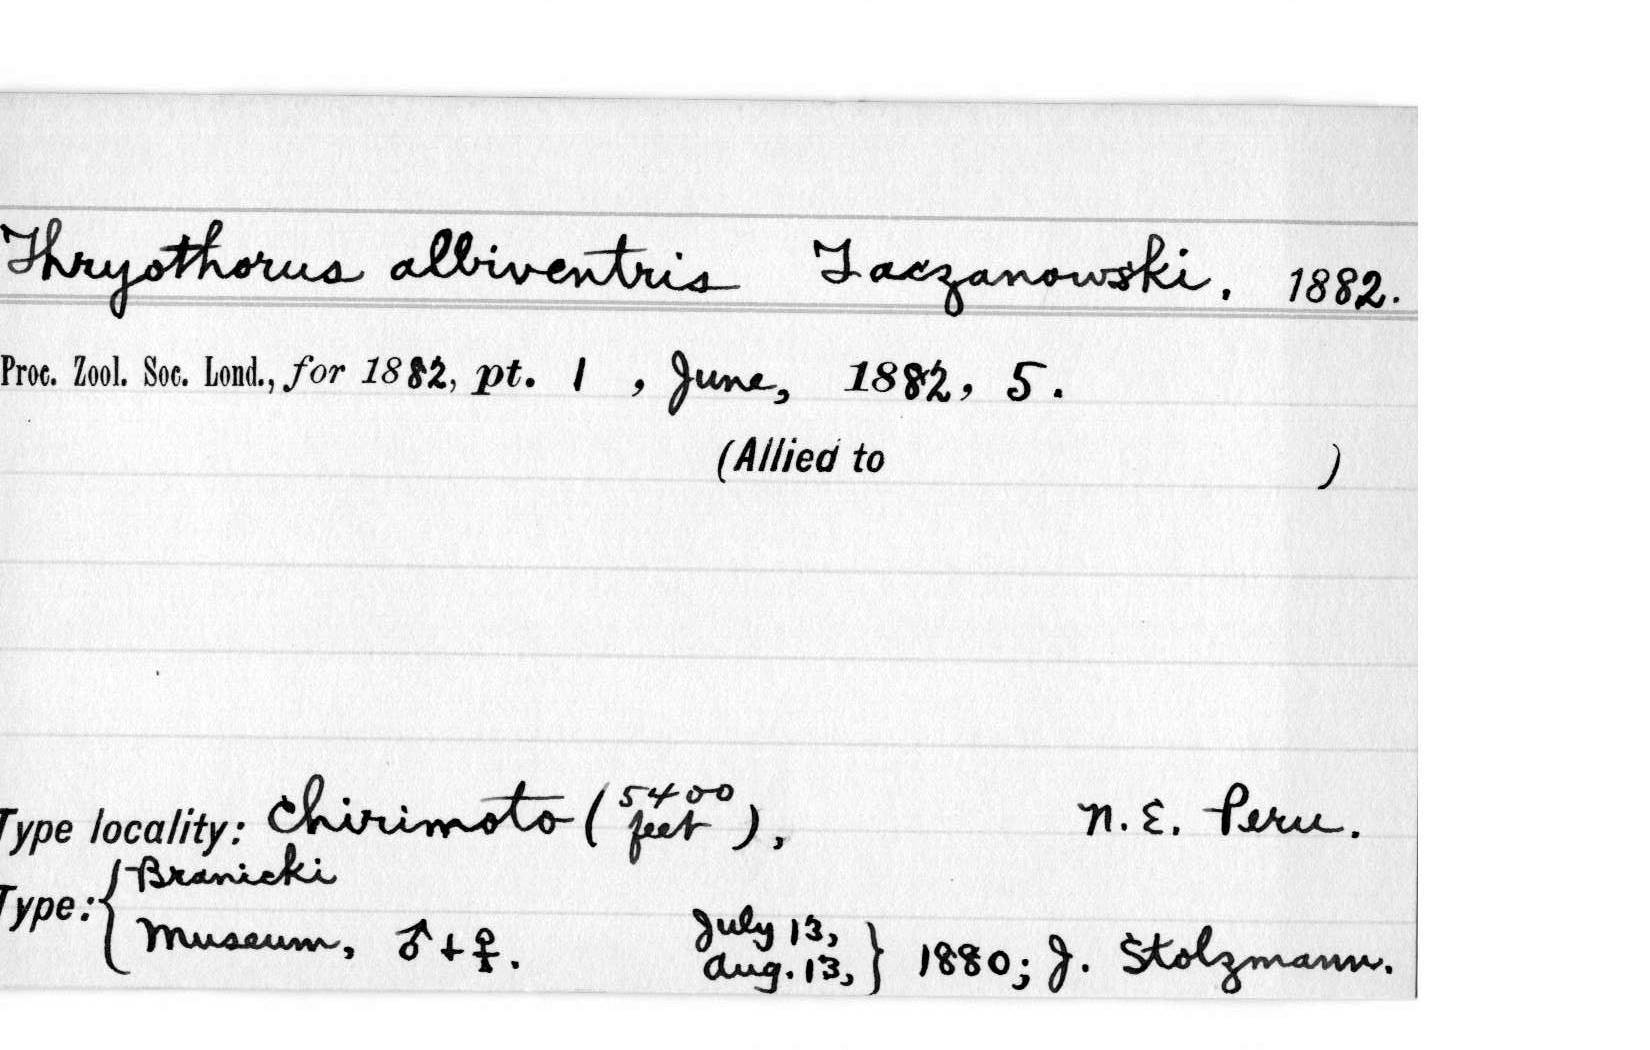 Thryothorus albiventris Taczanowski, 1882.
Proc. Zool. Soc. Lond., for 1882, pt. 1, June, 1882, 5.
(Allied to )
Type locality: Chirimoto (5400 feet), N. E. Peru.
Type: { Branicki
Museum, ♂ + ♀. July 13, Aug. 13, } 1880; J. Stolzmann.